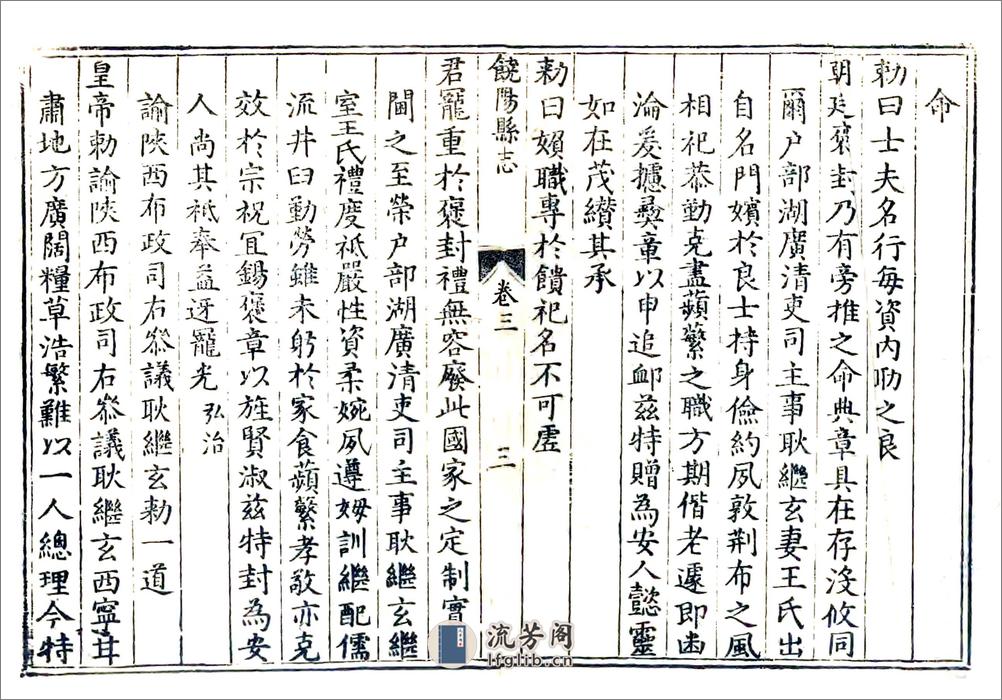 命
勅曰士夫名行每資內助之良
朝廷褒封乃有旁推之命典章具在存没攸同
爾户部湖廣清吏司主事耿繼玄妻王氏出
自名門嬪於良士持身儉約夙敦荆布之風
相祀恭勤克盡蘋蘩之職方期偕老遽即幽
淪爰攄彝章以申追卹兹特贈為安人懿靈
如在茂纘其承
勅曰嬪職專於饋祀名不可虚
饒陽縣志
卷三
三
君寵重於褒封禮無容廢此國家之定制實
閫之至榮户部湖廣清吏司主事耿繼玄繼
室王氏禮度祗嚴性資柔婉夙遵姆訓繼配儒
流井臼勤勞雖未躬於家食蘋蘩孝敬亦克
效於宗祝宜錫褒章以旌賢淑兹特封為安
人尚其祗奉益迓寵光 弘治
諭陝西布政司右叅議耿繼玄勅一道
皇帝勅諭陝西布政司右叅議耿繼玄西寧甘
肅地方廣闊糧草浩繁難以一人總理今特
流芳阁
lfglib.cn